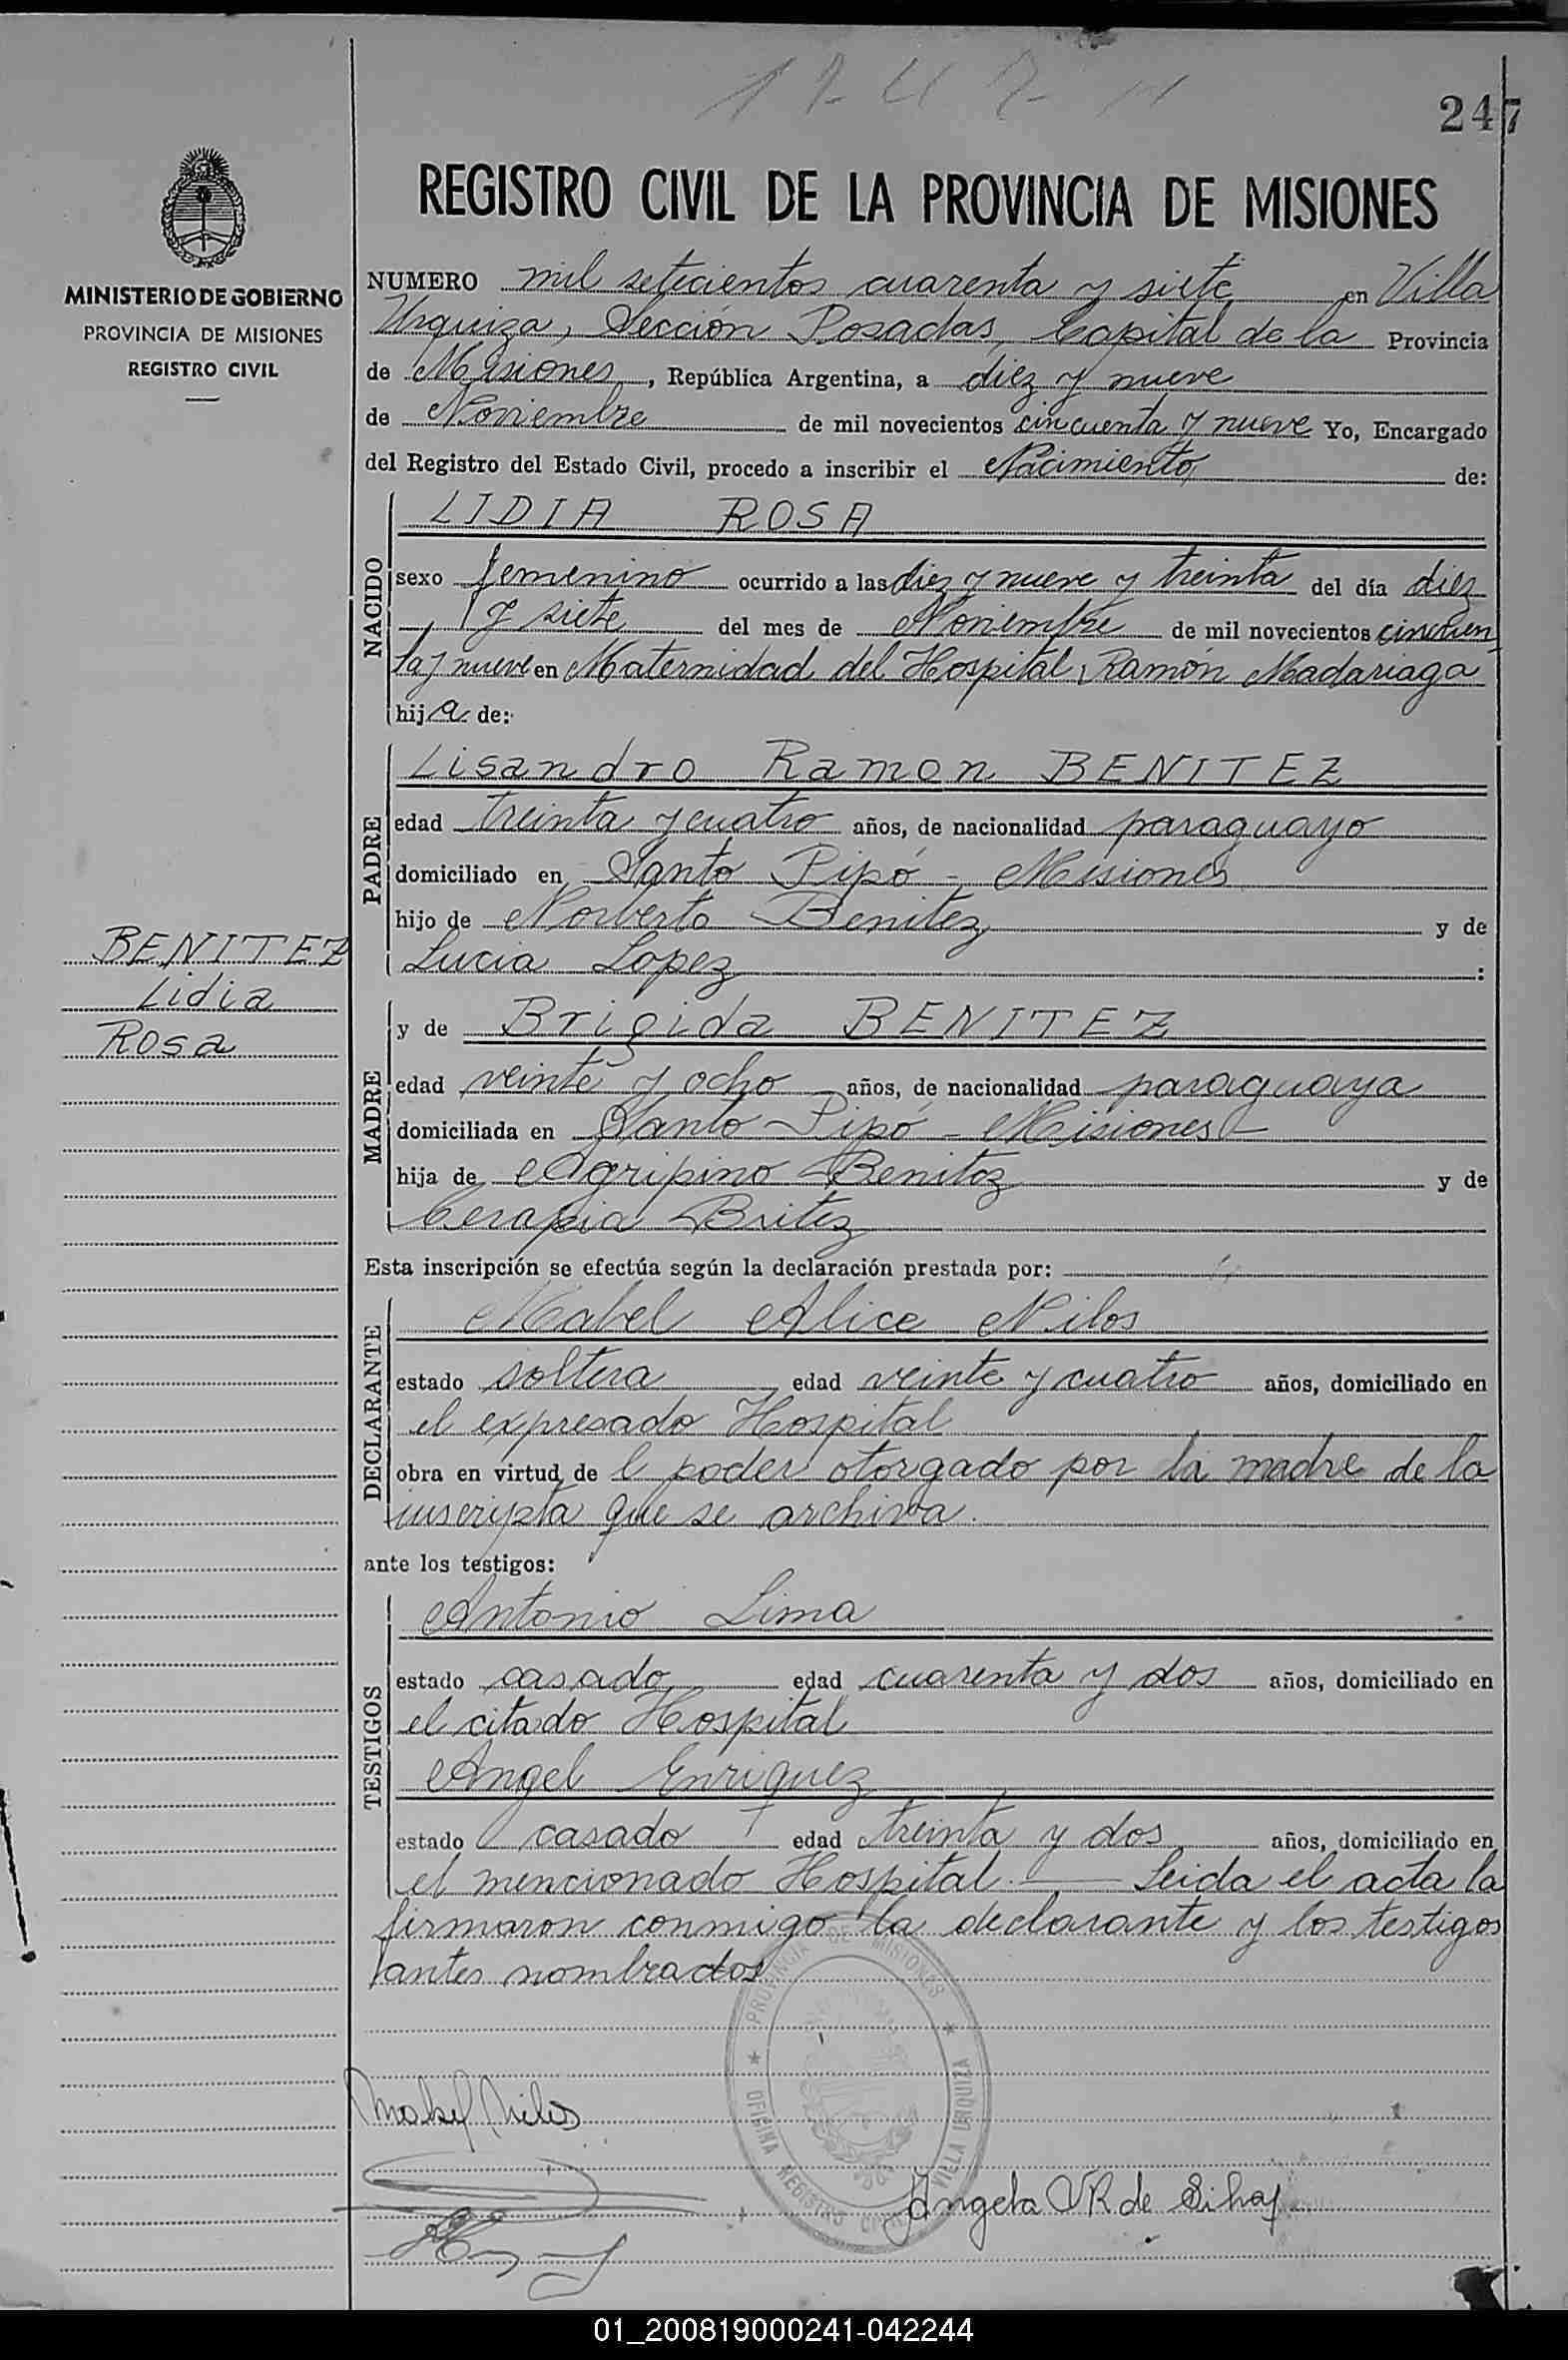 1747
247
MINISTERIO DE GOBIERNO
PROVINCIA DE MISIONES
REGISTRO CIVIL
REGISTRO CIVIL DE LA PROVINCIA DE MISIONES
NUMERO mil setecientos cuarenta y siete en Villa
Urquiza, Sección Posadas, Capital de la Provincia
de Misiones, República Argentina, a diez y nueve
de Noviembre de mil novecientos cincuenta y nueve Yo, Encargado
del Registro del Estado Civil, procedo a inscribir el Nacimiento, de:
NACIDO
LIDIA ROSA
sexo femenino ocurrido a las diez y nueve y treinta del día diez
y siete del mes de Noviembre de mil novecientos cincuen
ta y nueve en Maternidad del Hospital Ramón Madariaga
hija de:
PADRE
Lisandro Ramon BENITEZ
edad treinta y cuatro años, de nacionalidad paraguayo
domiciliado en Santo Pipó - Misiones
hijo de Norberto Benitez y de
Lucia Lopez :
BENITEZ
Lidia
Rosa
MADRE
y de Brigida BENITEZ
edad veinte y ocho años, de nacionalidad paraguaya
domiciliada en Santo Pipó - Misiones -
hija de Agripino Benitez y de
Cerapia Britez
Esta inscripción se efectúa según la declaración prestada por:
DECLARANTE
Mabel Alice Nilos
estado soltera edad veinte y cuatro años, domiciliado en
el expresado Hospital
obra en virtud de l poder otorgado por la madre de la
inscripta que se archiva.
ante los testigos:
TESTIGOS
Antonio Lima
estado casado edad cuarenta y dos años, domiciliado en
el citado Hospital
Angel Enriquez
estado casado edad treinta y dos años, domiciliado en
el mencionado Hospital. — Leida el acta la
firmaron conmigo la declarante y los testigos
antes nombrados
PROVINCIA DE MISIONES
OFICINA REGISTRO CIVIL VILLA URQUIZA
Mabel Nilos
Angela R de
01_200819000241-042244